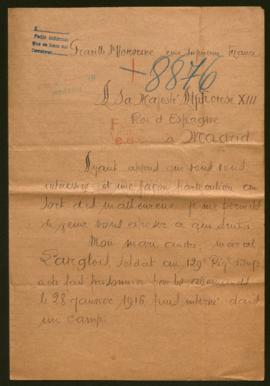 Graville Ste Honorine Seine Inférieure France
+8876
A Sa Majesté Alphonse XIII
Roi d'Espagne
à Madrid
Ayant appris que vous vous
intéressez d'une façon particulière au
sort des malheureux je me permets
de venir vous exposer ce qui suit
Mon mari André, Marcel
Langlois soldat au 129e Régt d'Inf
a été fait prisonnier par les allemands
le 28 janvier 1916 puis interné dans
un camp